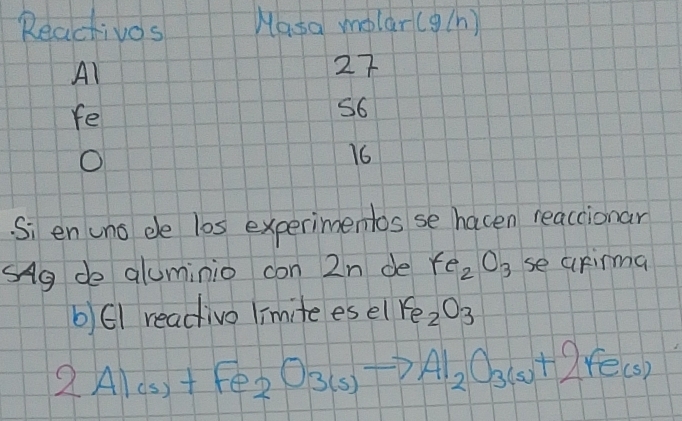 Reactivos Masa molar (g/n)
Al 27
Fe 56
O 16
Si en uno de los experimentos se hacen reaccionar
54g de aluminio con 2n de Fe₂O₃ se afirma
b) El reactivo límite es el Fe₂O₃
2 Al(s) + Fe₂O₃(s) → Al₂O₃(s) + 2Fe(s)